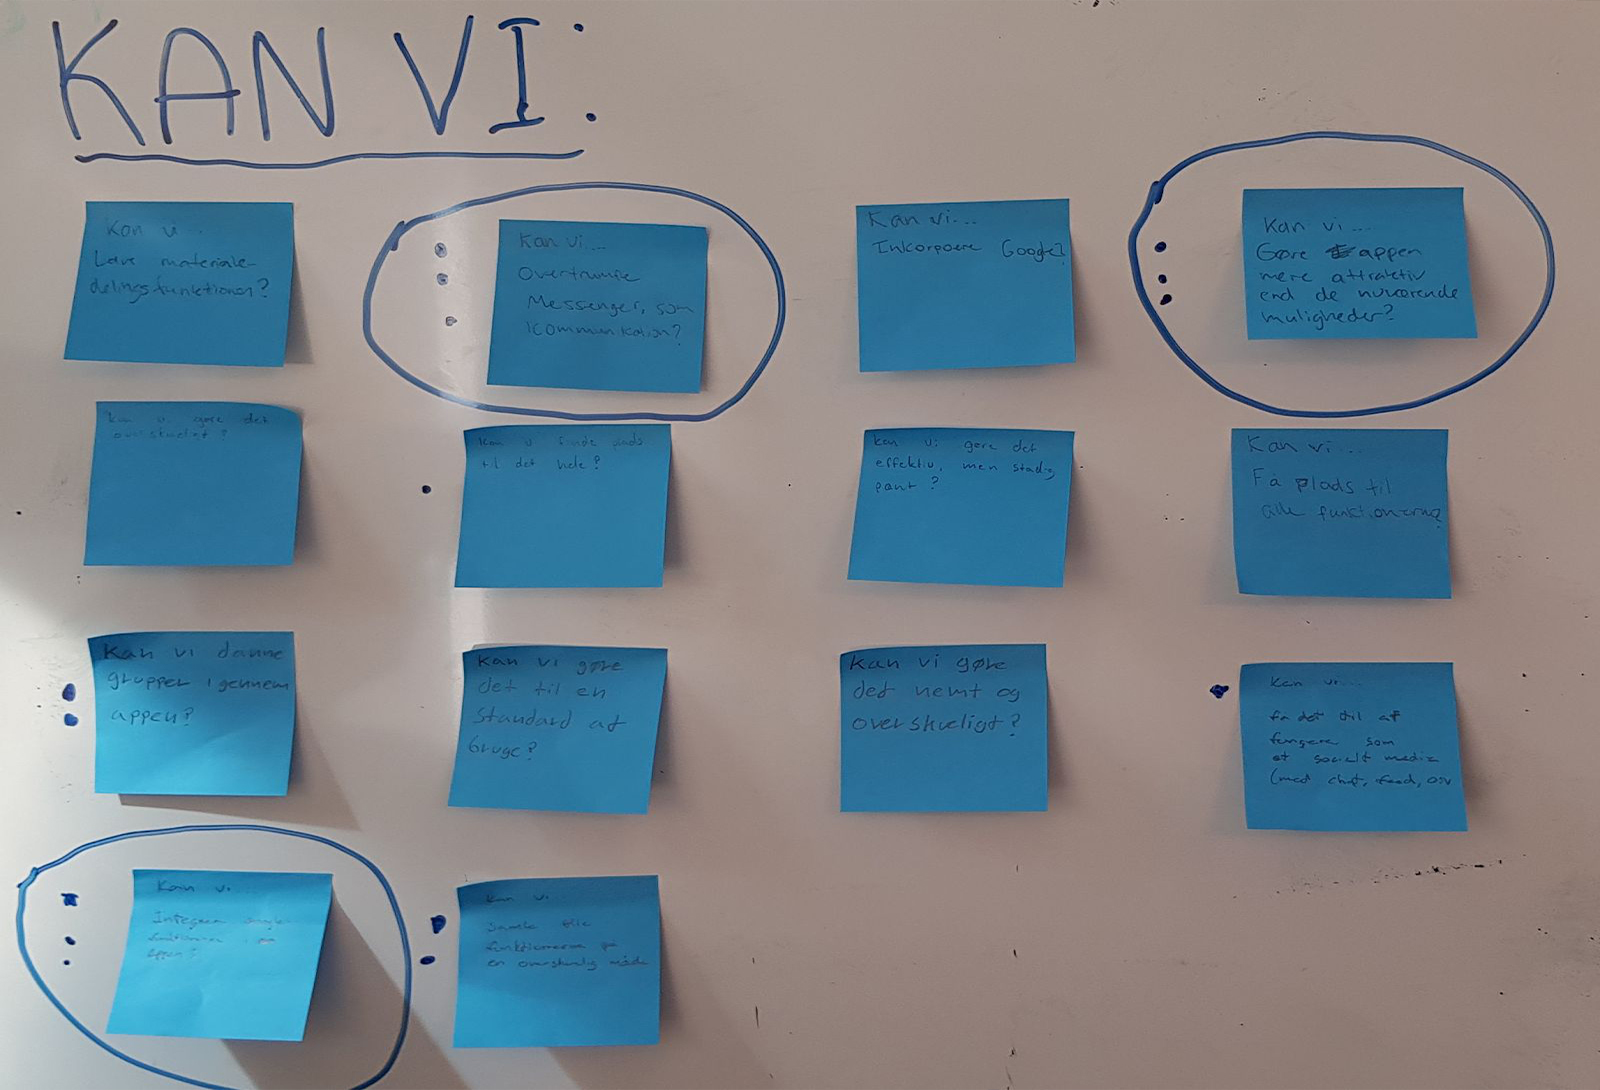 KAN VI:
Kan vi..
Lave materiale-
delingsfunktionen?
Kan vi...
Overtrumfe
Messenger, som
kommunikation?
Kan vi...
Inkorporere Google?
Kan vi...
Gøre appen
mere attraktiv
end de nuværende
muligheder?
kan vi gøre det
overskueligt?
kan vi finde plads
til det hele?
kan vi gøre det
effektiv, men stadig
pænt?
Kan vi...
Få plads til
alle funktionerne?
Kan vi danne
grupper igennem
appen?
Kan vi gøre
det til en
standard at
bruge?
Kan vi gøre
det nemt og
overskueligt?
Kan vi...
få det til at
fungere som
et socialt medie
(med chat, feed, osv
Kan vi...
Integrere
funktionerne i en
appen?
Kan vi...
samle alle
funktionerne på
en overskuelig måde